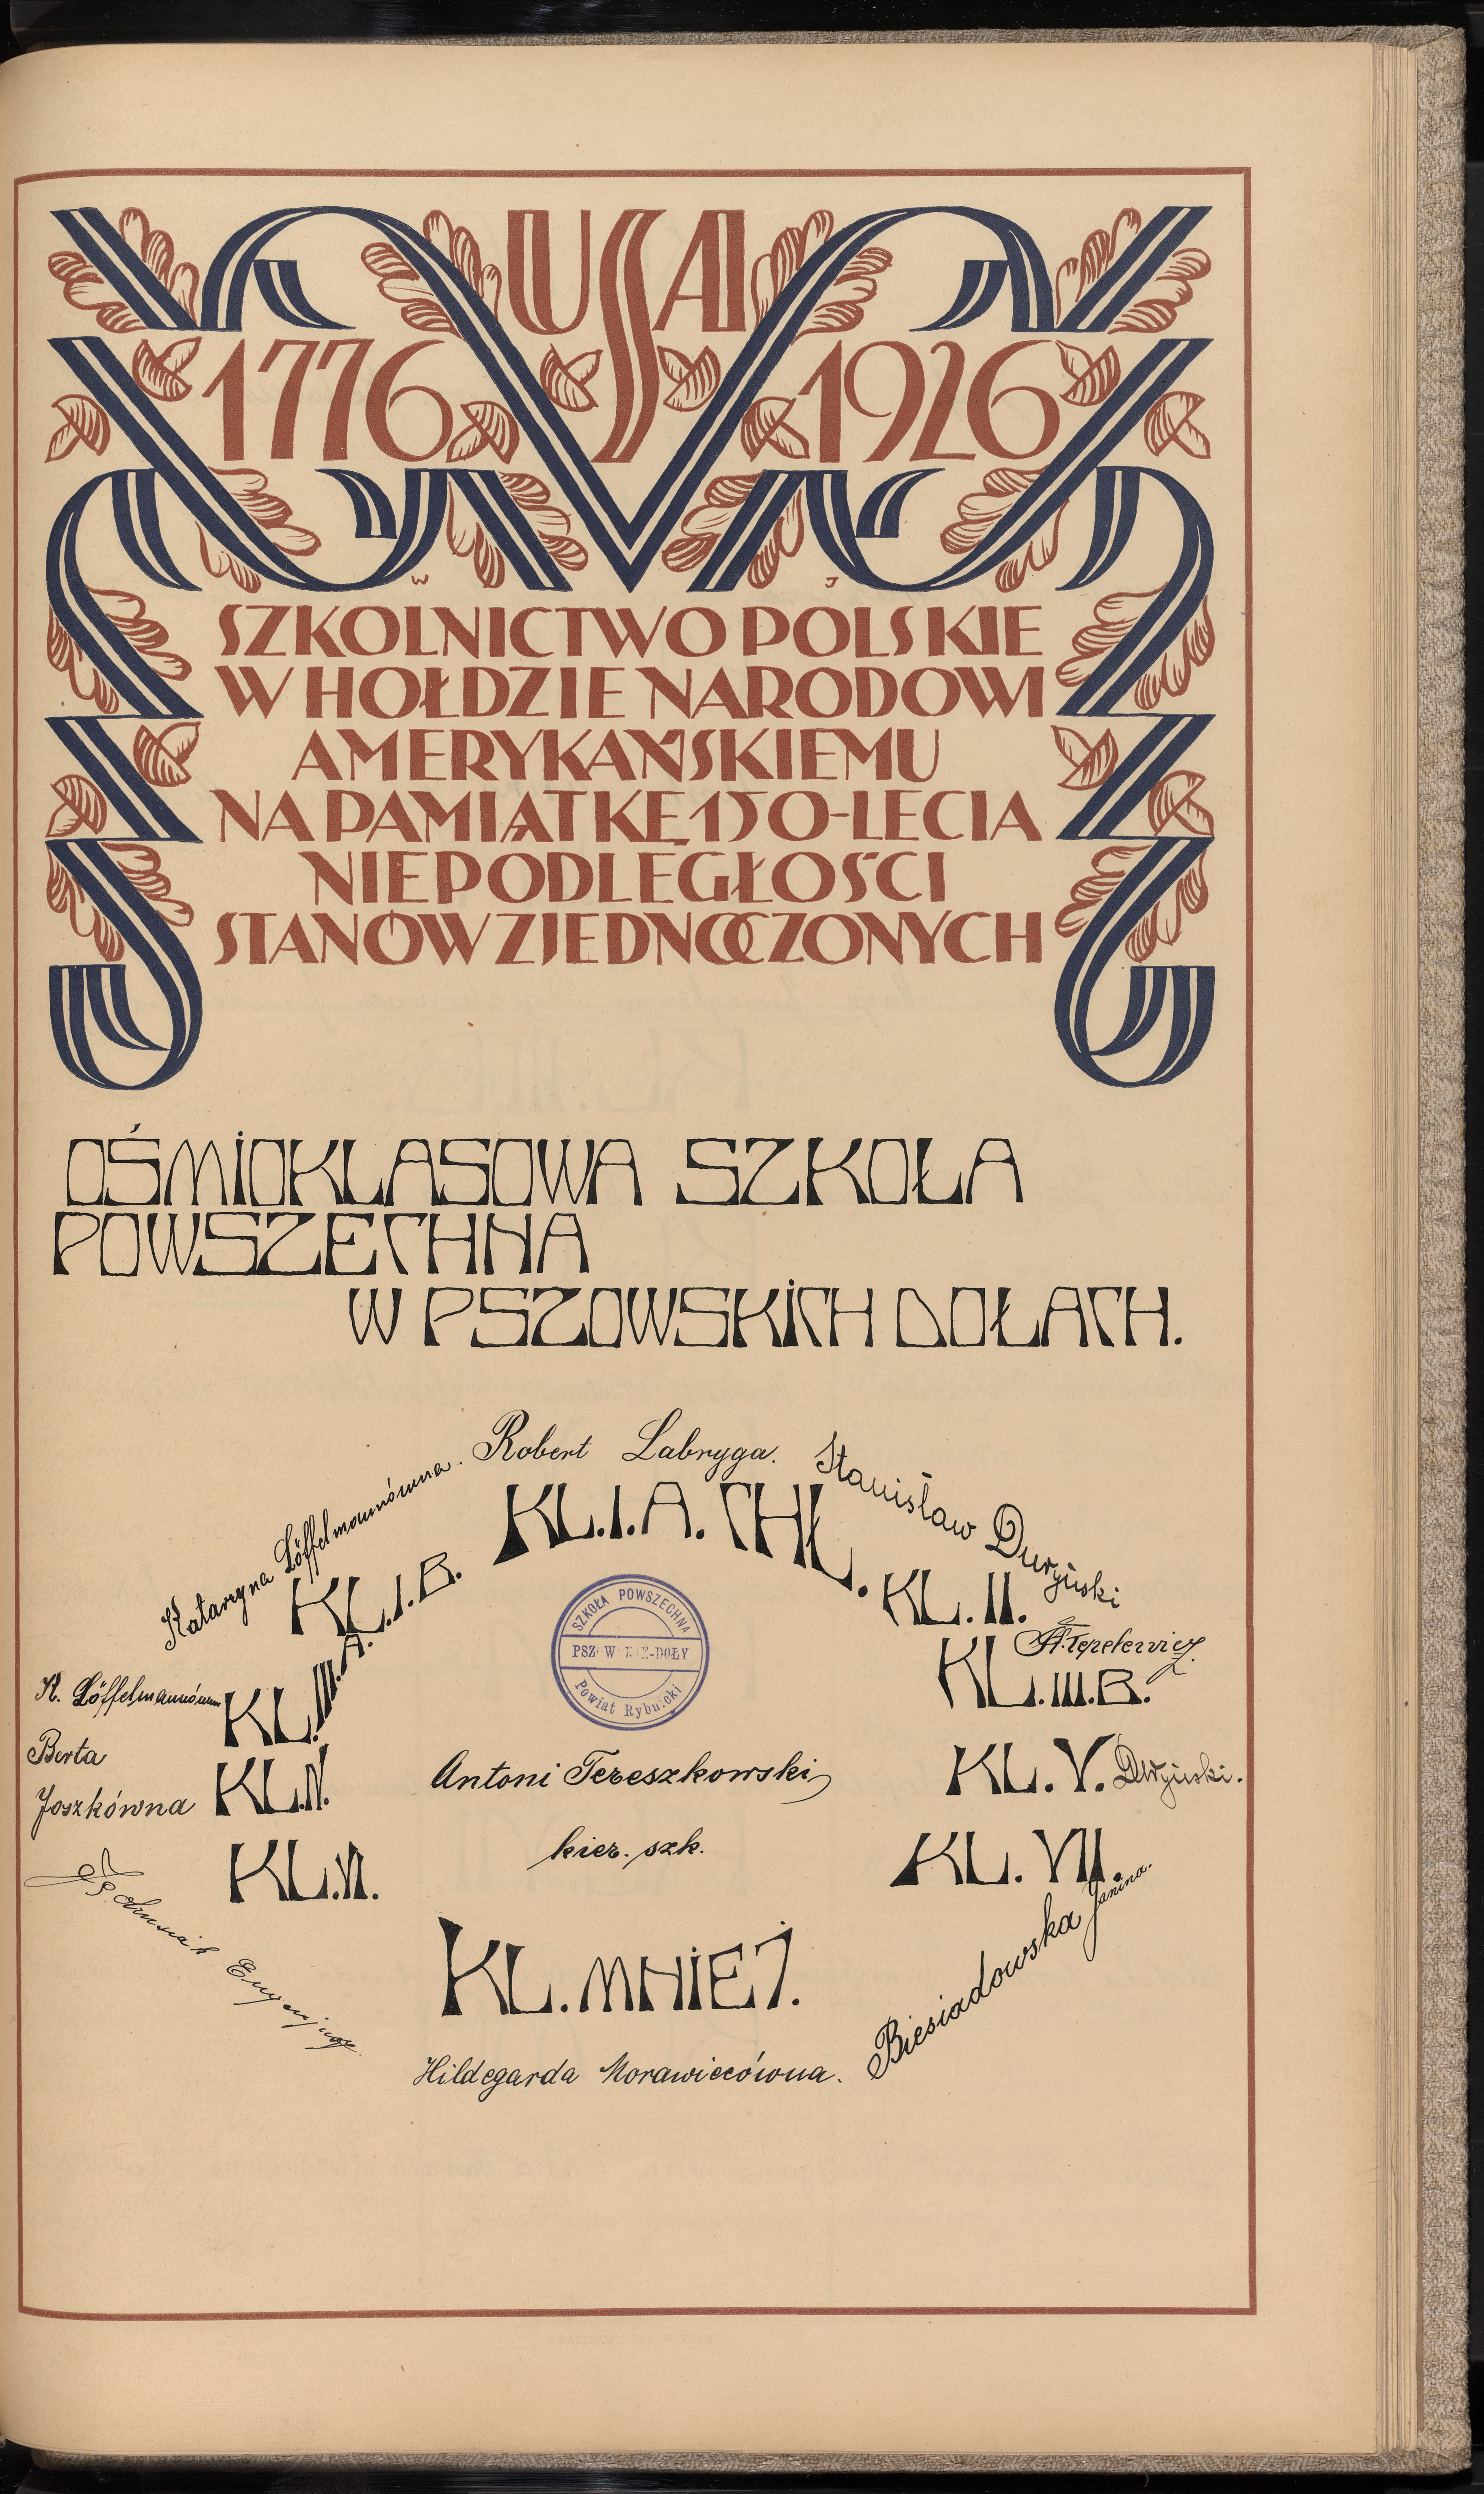 USA
1776 1926
W J
SZKOLNICTWO POLSKIE
W HOŁDZIE NARODOWI
AMERYKAŃSKIEMU
NA PAMIĄTKĘ 150-LECIA
NIEPODLEGŁOŚCI
STANÓW ZJEDNOCZONYCH
OŚMIOKLASOWA SZKOŁA
POWSZECHNA
W PSZOWSKICH DOŁACH.
Robert Labryga.
KL. I. A. CHŁ.
Katarzyna Löffelmannówna.
KL. I. B.
Stanisław Durzyński
KL. II.
K. Löffelmannówna
KL. III. A.
KL. III. B.
SZKOŁA POWSZECHNA
PSZOWSKIE-DOŁY
Powiat Rybnicki
Berta
Joszkówna
KL. IV.
Antoni Tereszkowski
kier. szk.
KL. V.
KL. VI.
Eugenjusz
KL. VII.
Biesiadowska Janina.
KL. MNIEJ.
Hildegarda Morawiecówna.